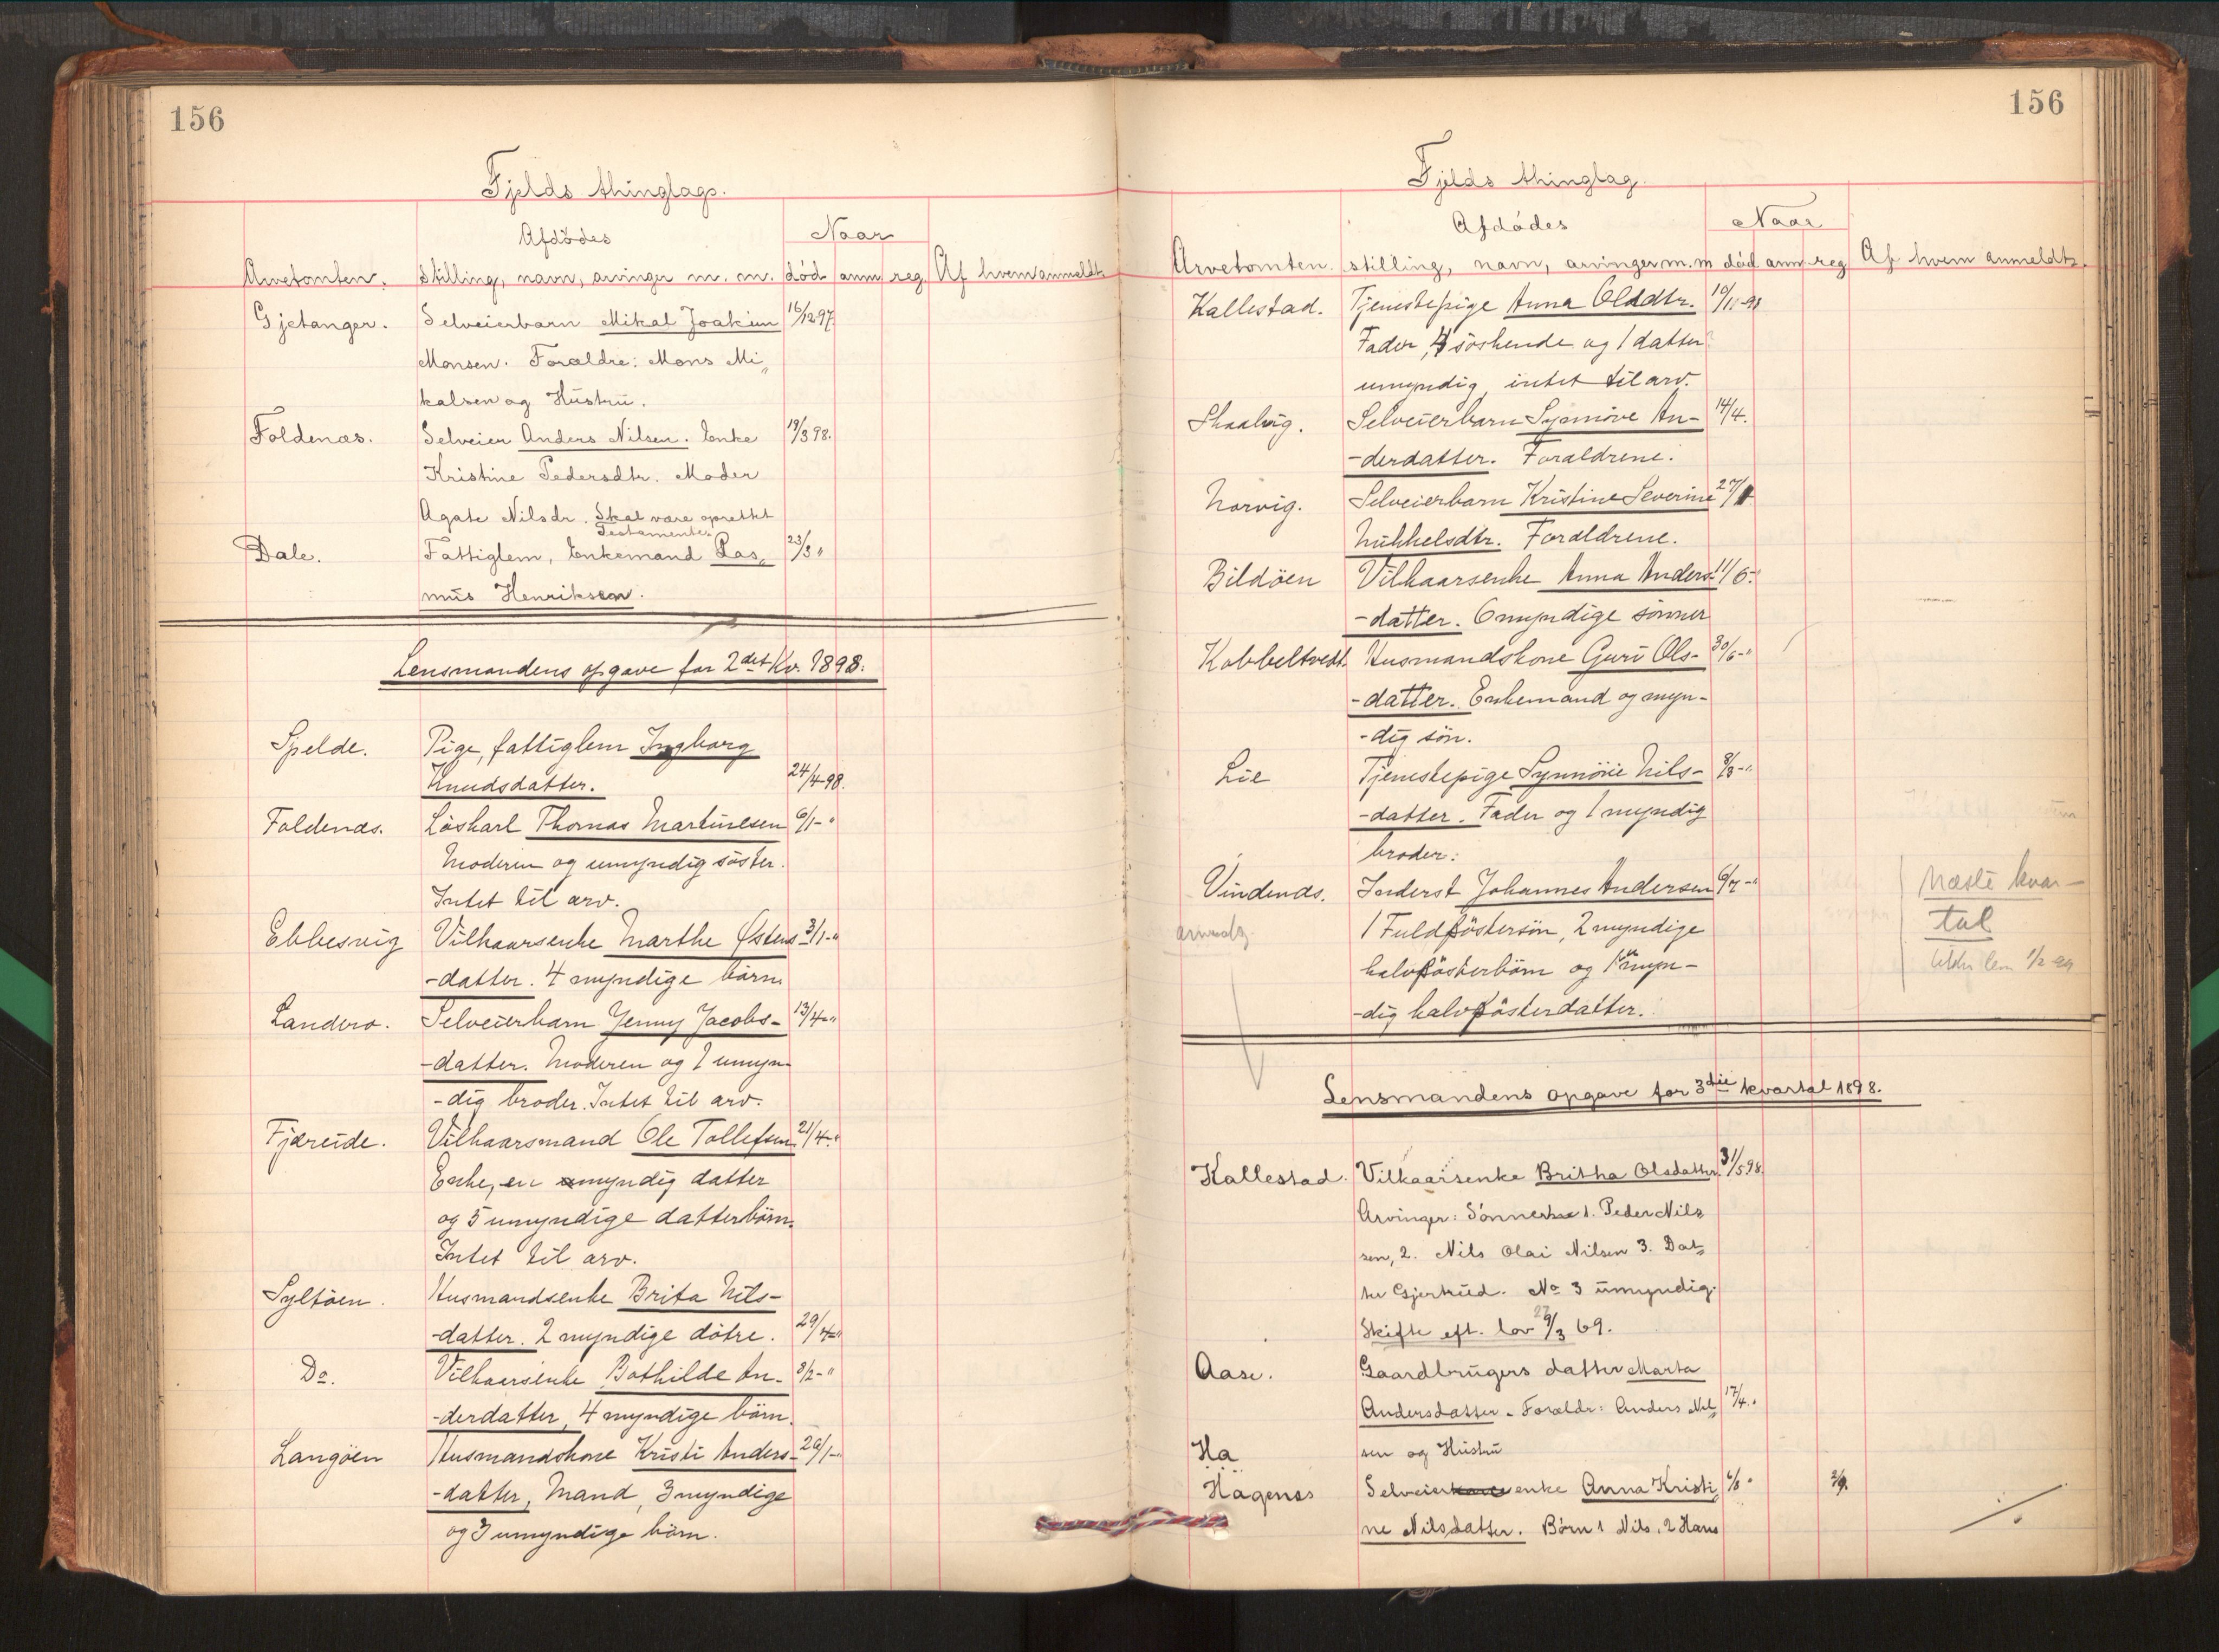 156
Fjelds thinglags.
Afdödes
Naar
Arvetomten. Stilling, navn, arvinger m. m. död anm reg. Af hvem anmeldt.
Gjetanger. Selveierbarn Mikal Joakim 16/12 97.
Monsen. Forældre: Mons Mi„
kalsen og Hustru.
Foldenæs. Selveier Anders Nilsen. Enke 19/3 98.
Kristine Pedersdtr. Moder
Agate Nilsdr. Skal være oprettet
Testamente.
Dale. Fattiglem, Enkemand Ras„ 23/3 "
mus Henriksen.
Lensmandens opgave for 2det Kv. 1898.
Spelde. Pige, fattiglem Ingborg
Knudsdatter. 24/4-98.
Foldenæs. Löskarl Thomas Martinesen 6/1-"
Moderen og umyndig söster.
Intet til arv.
Ebbesvig Vilkaarsenke Marthe Østens- 3/1-"
-datter. 4 myndige börn.
Landero. Selveierbarn Jenny Jacobs- 13/4-"
-datter. Moderen og 1 umyn-
-dig broder. Intet til arv.
Fjæreide. Vilkaarsmand Ole Tollefsen. 21/4-"
Enke, en myndig datter
og 5 umyndige datterbörn.
Intet til arv.
Syltöen. Husmandsenke Brita Nils-
-datter. 2 myndige dötre. 29/4-"
Do. Vilkaarsenke Bothilde An- 8/2-"
-derdatter, 4 myndige börn.
Langöen Husmandskone Kristi Anders- 26/1-"
-datter, Mand, 3 myndige
og 3 umyndige börn.
156
Fjelds thinglag.
Afdödes
Naar
Arvetomten. stilling, navn, arvinger m. m död anm reg Af hvem anmeldt.
Kallestad. Tjenestepige Anna Olddtr. 10/11-98
Fader, 4 söskende og 1 datter
umyndig, intet til arv.
Skaalvig. Selveierbarn Synnöve An- 14/4.
-derdatter. Forældrene.
Norvig. Selveierbarn Kristine Severine 27/1
Mikkelsdtr. Forældrene.
Bildöen Vilkaarsenke Anna Anders- 11/6-"
-datter. 6 myndige sönner
Kobbeltvedt. Husmandskone Guri Ols- 30/6-"
-datter. Enkemand og myn-
-dig sön.
Lie Tjenestepige Synnöve Nils- 8/3-"
-datter. Fader og 1 myndig
broder.
Vindenæs. Inderst Johannes Andersen 6/7-"
1 Fuldsöstersön, 2 myndige
halvsösterbörn og 1 umyn-
-dig halvsösterdatter.
Næste kvar-
tal
Lensmandens opgave for 3die kvartal 1898.
Kallestad. Vilkaarsenke Britha Olsdatter. 31/5 98.
Arvinger: Sönnerne 1. Peder Nils
sen, 2. Nils Olai Nilsen 3. Dat„
ter Gjertrud. No 3 umyndig.
Skifte eft. lov 29/3 69.
Aase. Gaardbrugers datter Marta
Andersdatter. Forældr: Anders Nil„ 17/4 "
Ha sen og Hustru
Hagenæs Selveier enke Anna Kristi„ 6/8 " 2/9.
ne Nilsdatter. Börn 1 Nils, 2 Hans